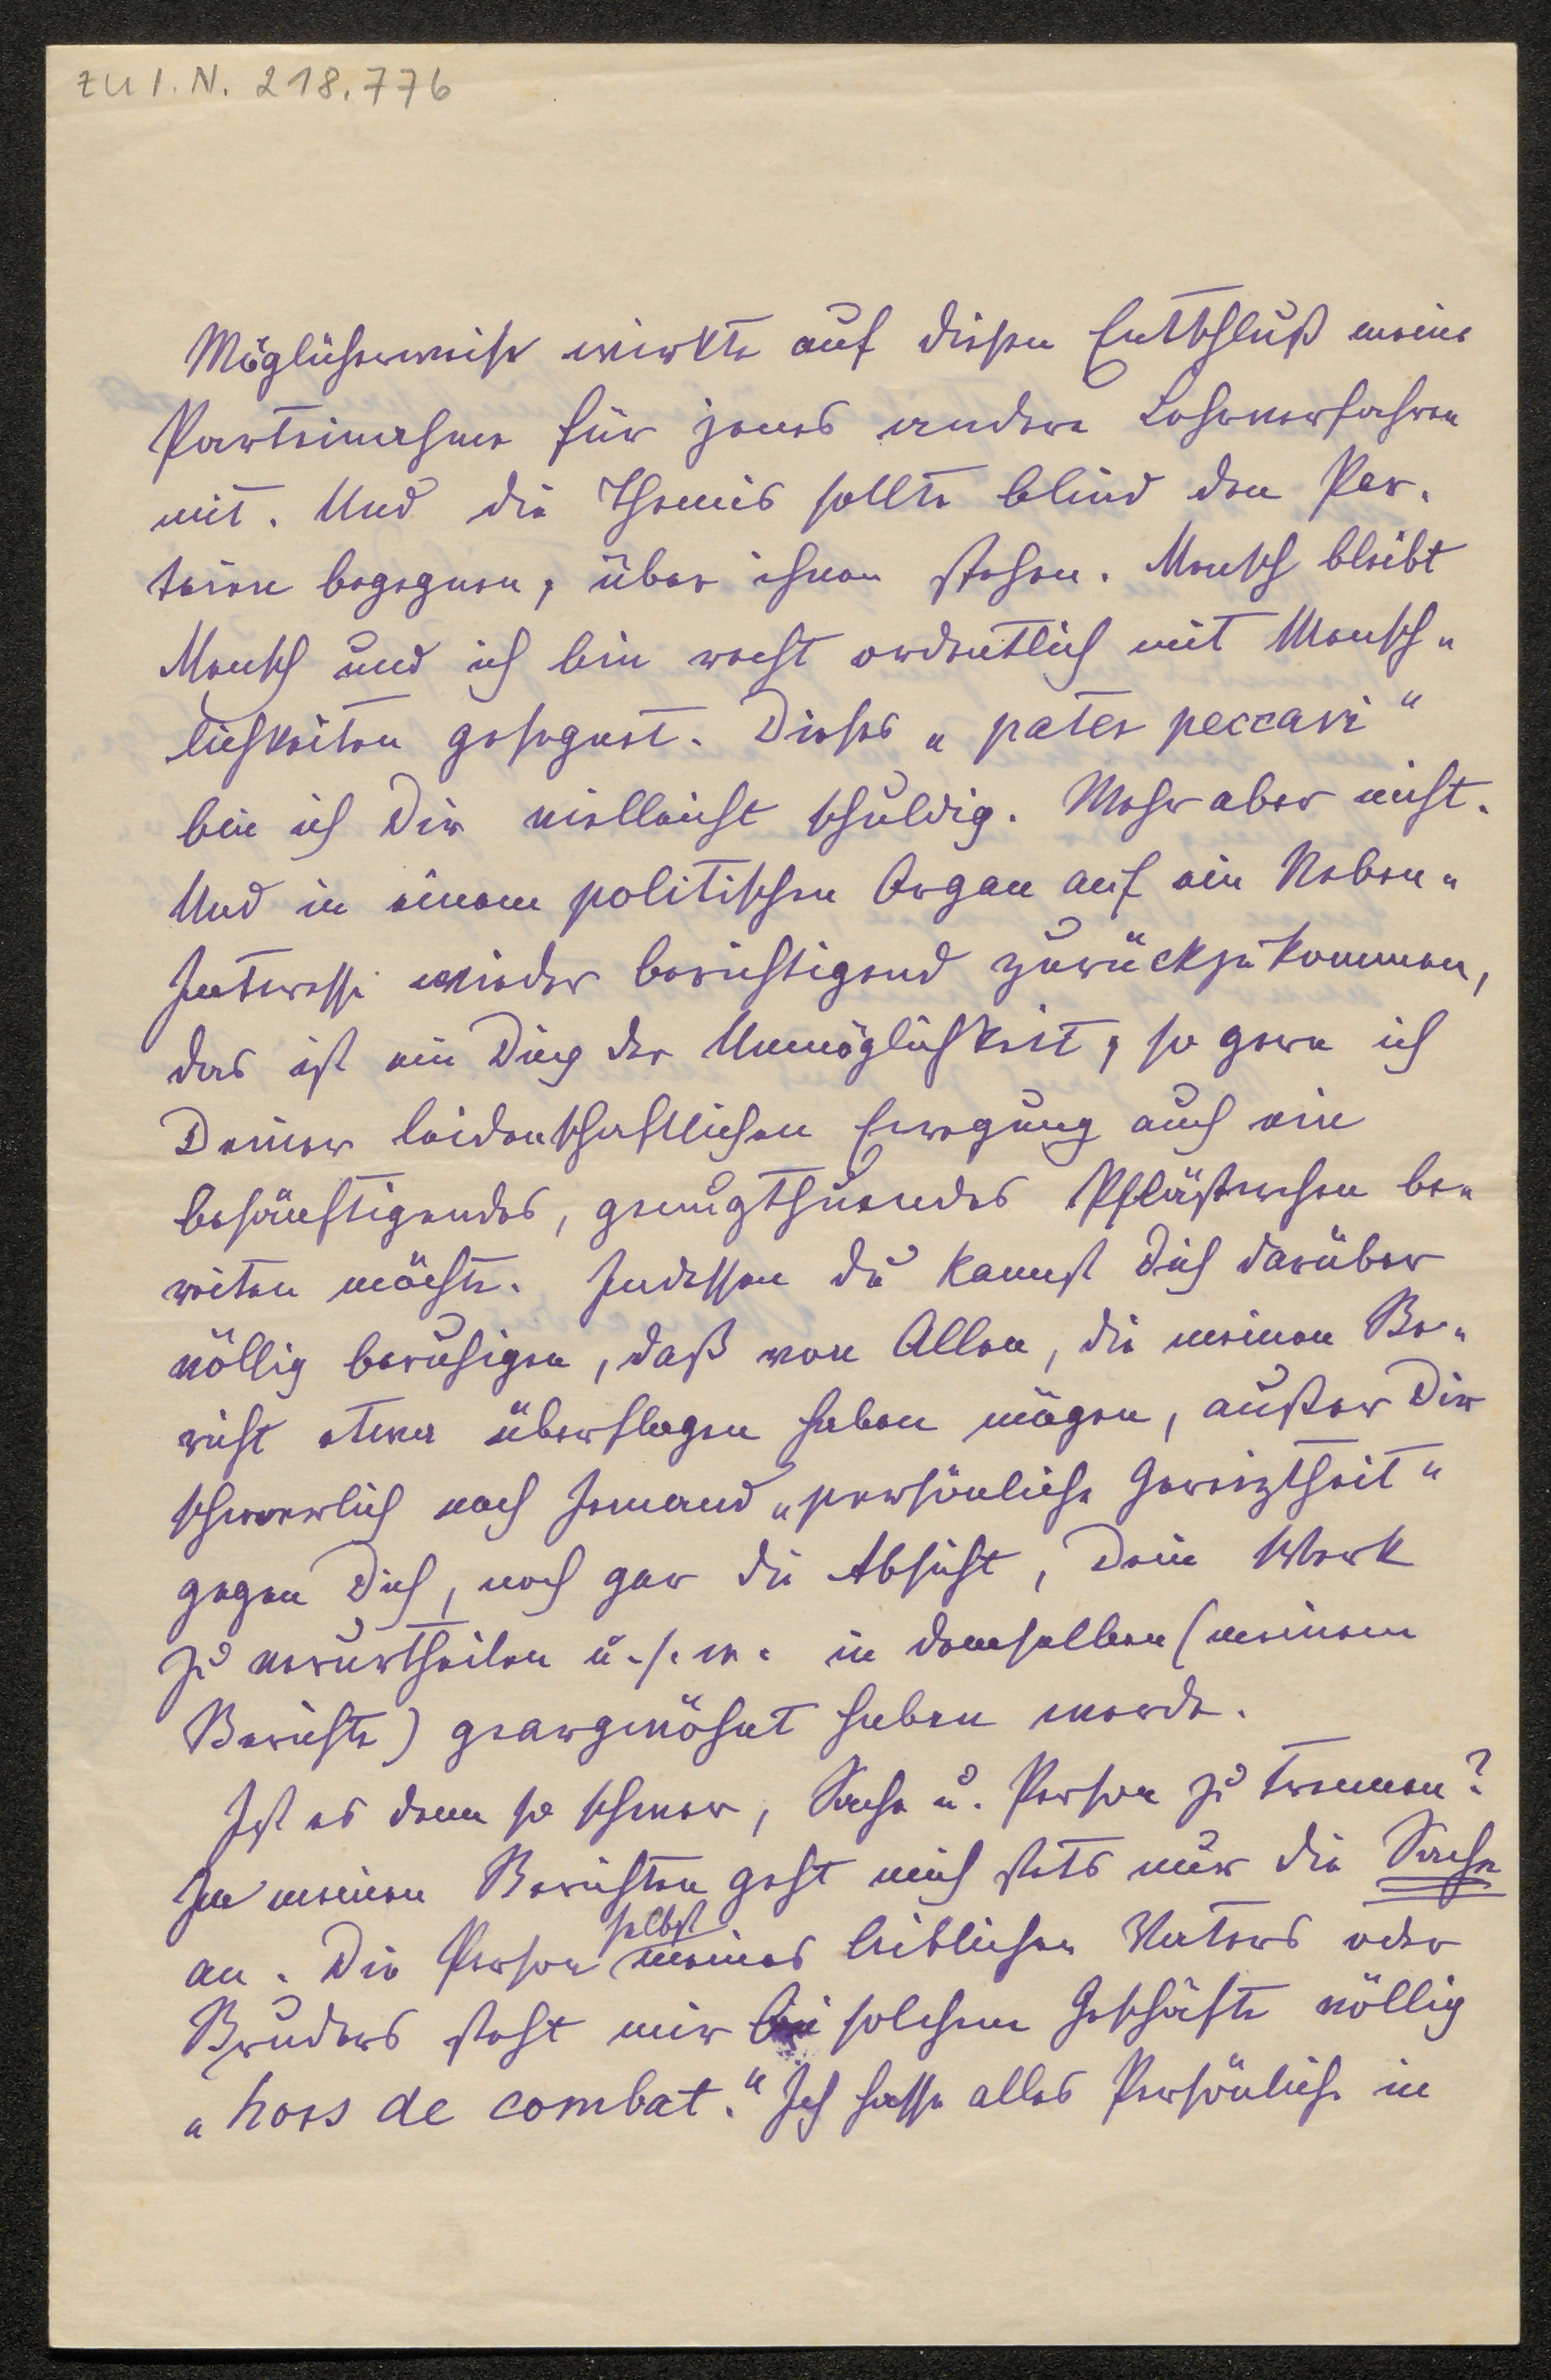 ZU I.N. 218.776
Möglicherweise wirkte auf diesen Entschluß meine
Parteinahme für jenes andere Lehrverfahren
mit. Und die Themis sollte blind den Par-
teien begegnen, über ihnen stehen. Mensch bleibt
Mensch und ich bin recht ordentlich mit Mensch-
lichkeiten gesegnet. Dieses „pater peccavi"
bin ich Dir vielleicht schuldig. Mehr aber nicht.
Und in einem politischen Organ auf ein Neben-
Interesse wieder berichtigend zurückzukommen,
das ist ein Ding der Unmöglichkeit, so gern ich
Deiner leidenschaftlichen Erregung auch ein
besänftigendes, genugthuendes Pflästerchen be-
reiten möchte. Indessen du kannst Dich darüber
völlig beruhigen, daß von Allen, die meinen Be-
richt etwa überflogen haben mögen, außer Dir
schwerlich noch Jemand „persönliche Gereiztheit"
gegen Dich, noch gar die Absicht, Dein Werk
zu verurtheilen u. s. w. in demselben (meinem
Berichte) geargwöhnt haben werde.
Ist es denn so schwer, Sache u. Person zu trennen?
In meinen Berichten geht mich stets nur die Sache
an. Die Person selbst meines leiblichen Vaters oder
Bruders steht mir bei solchem Geschäfte völlig
„hors de combat." Ich hasse alles Persönliche in